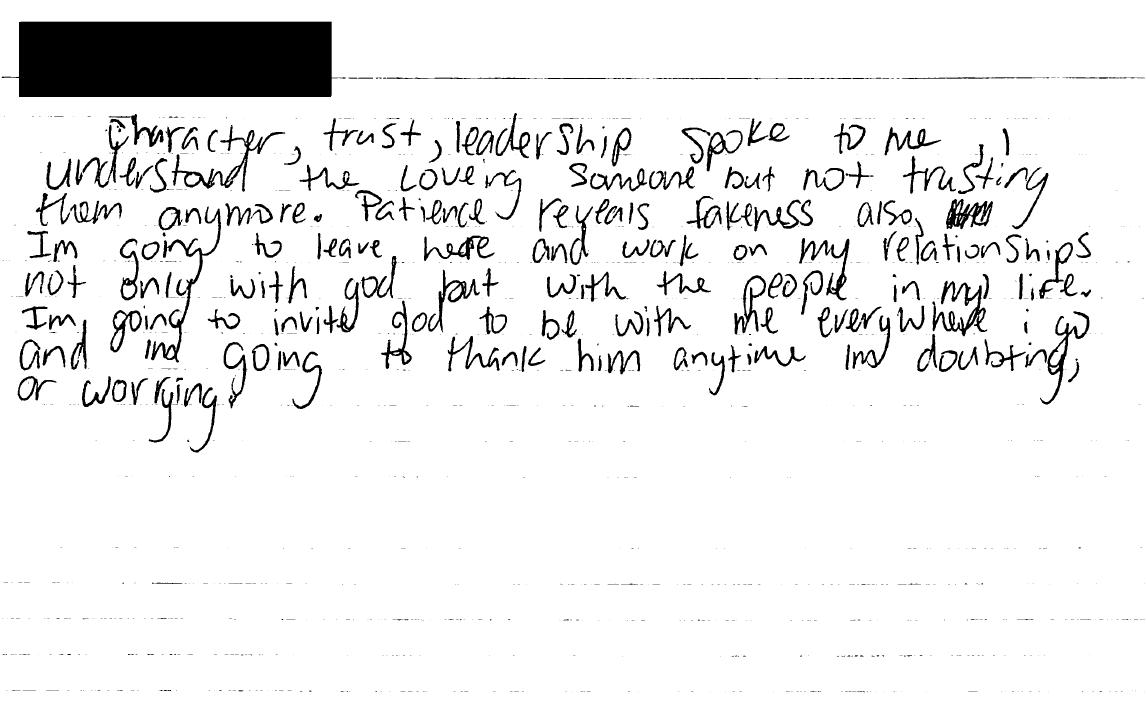 Character, trust, leadership spoke to me, I
understand the Loveing Someone but not trusting
them anymore. Patience reveals fakeness also,
Im going to leave here and work on my relationships
not only with god but with the people in my life.
Im going to invite god to be with me everywhere i go
and im going to thank him anytime im doubting,
or worrying.